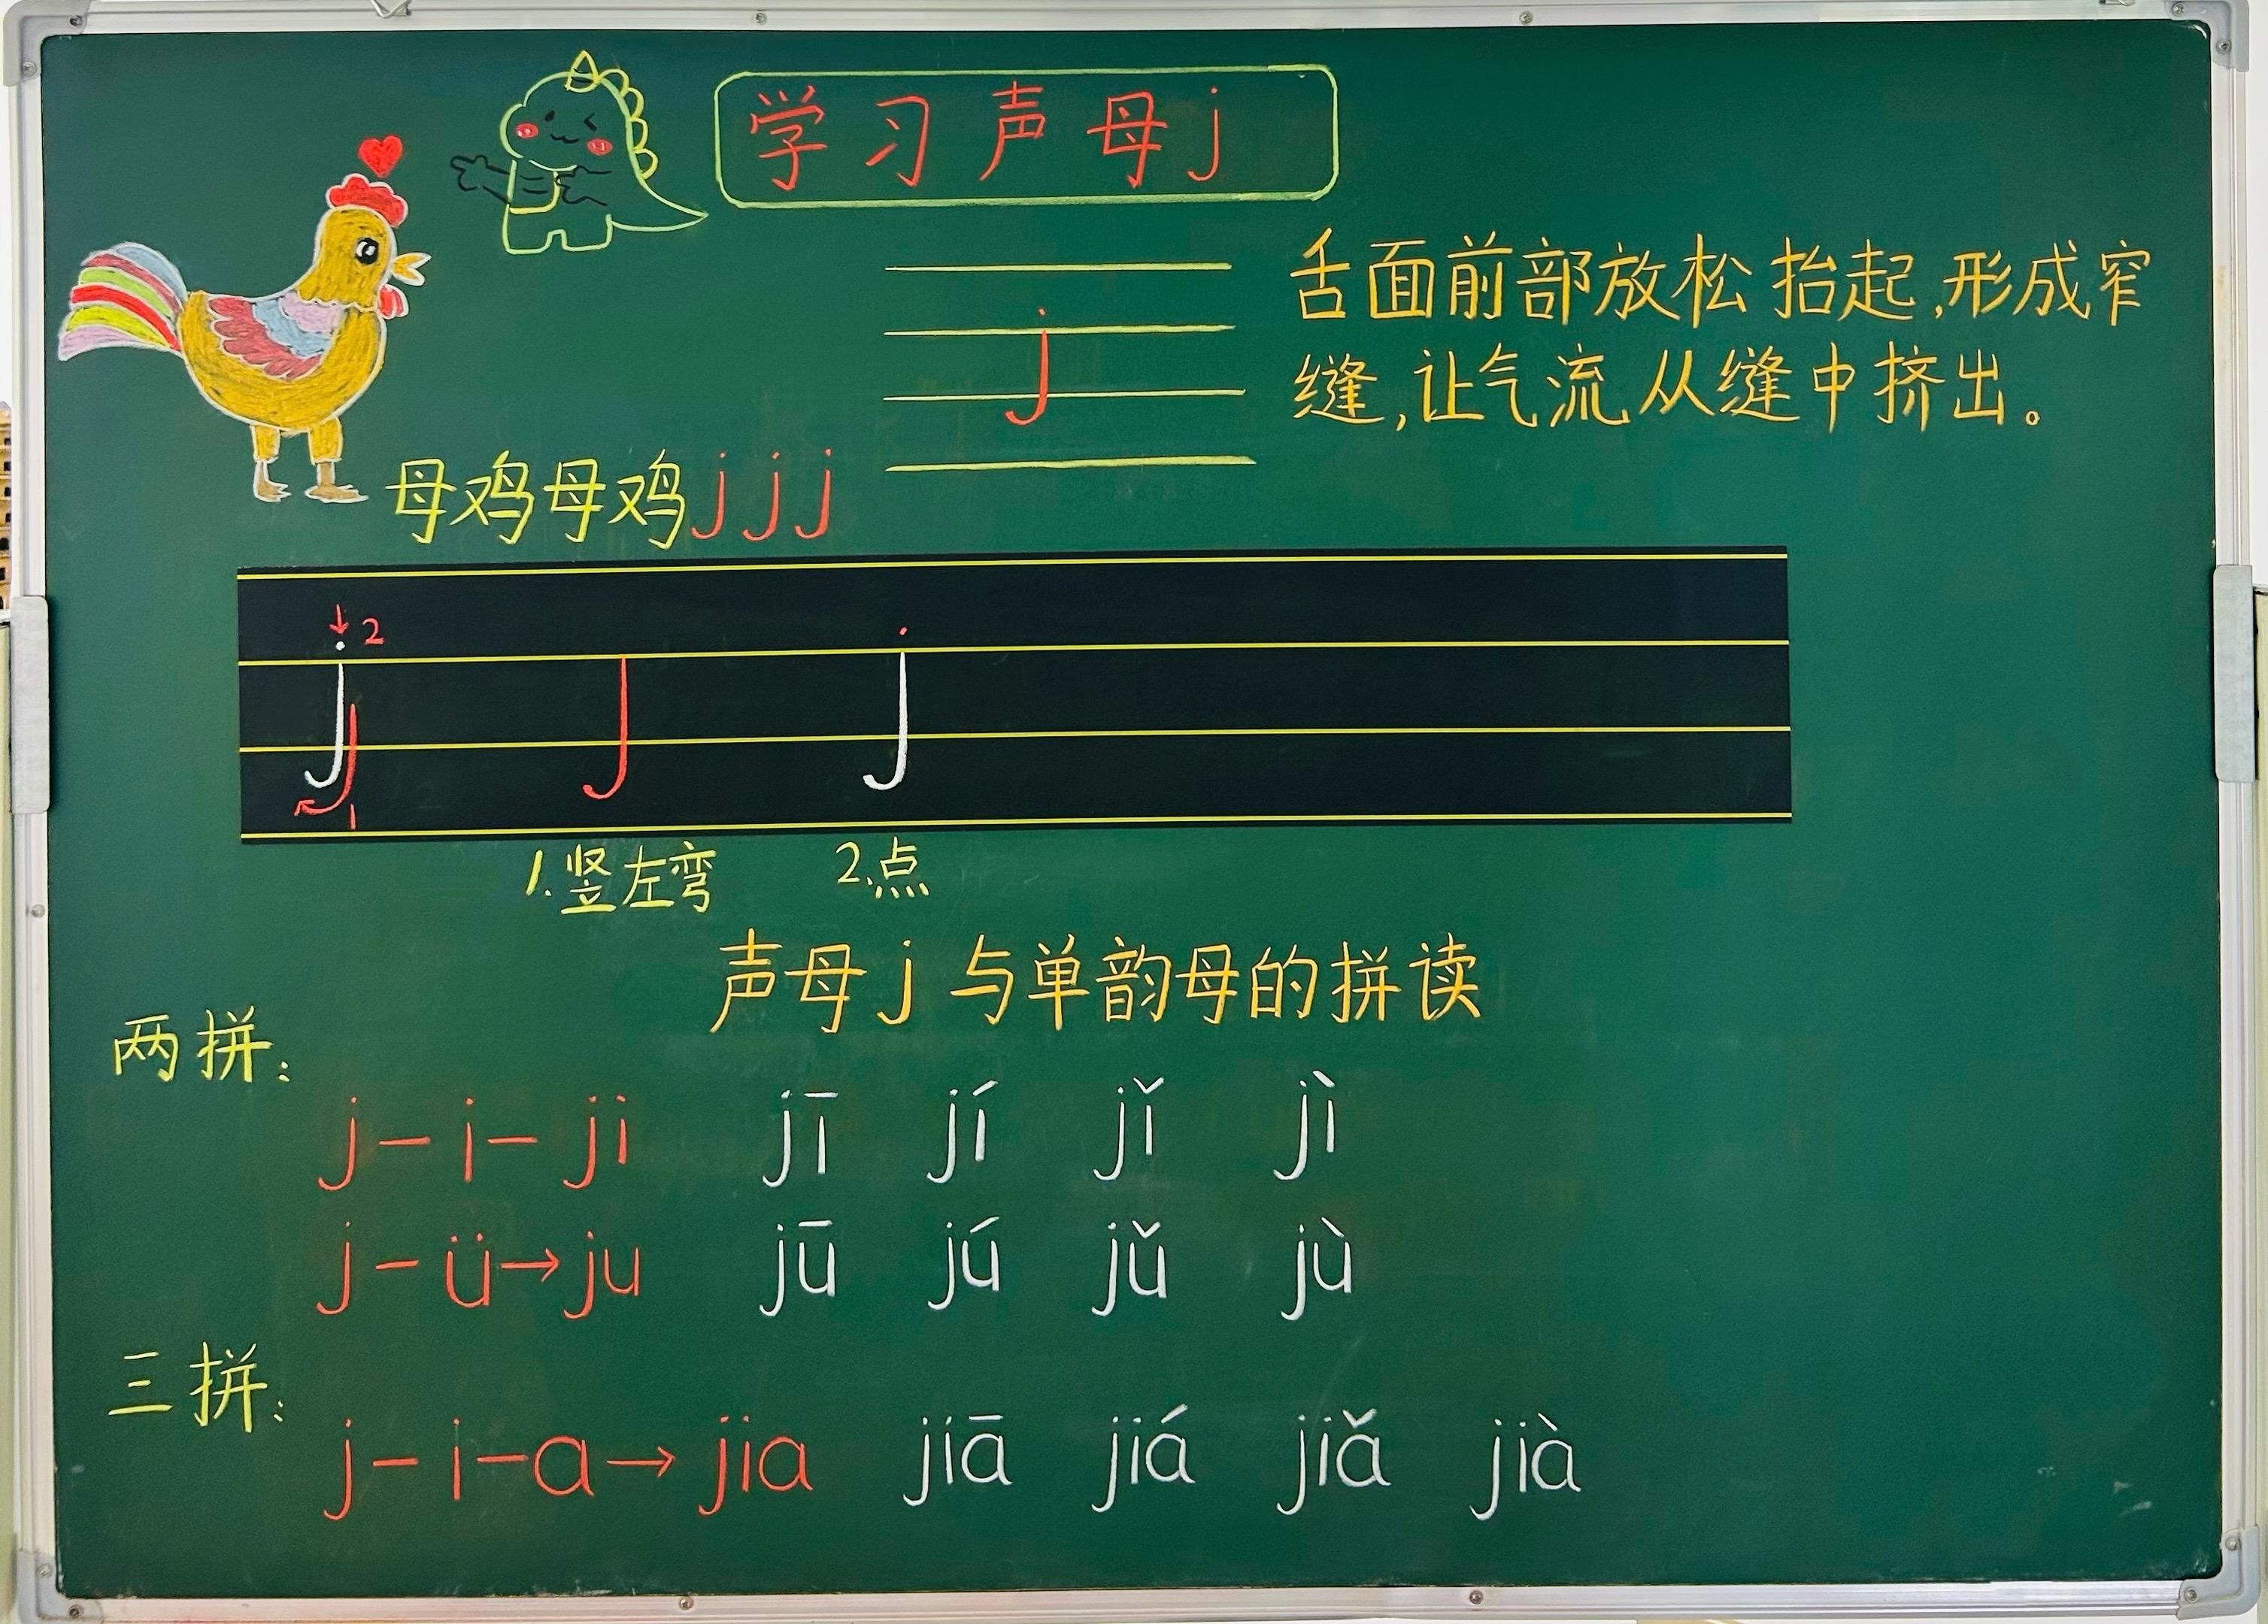 学习声母j
j
舌面前部放松抬起,形成窄
缝,让气流从缝中挤出。
母鸡母鸡jjj
2
j
1
j
j
1.竖左弯 2.点
声母j与单韵母的拼读
两拼:
j－i－ji jī jí jǐ jì
j－ü→ju jū jú jǔ jù
三拼:
j－i－a→jia jiā jiá jiǎ jià